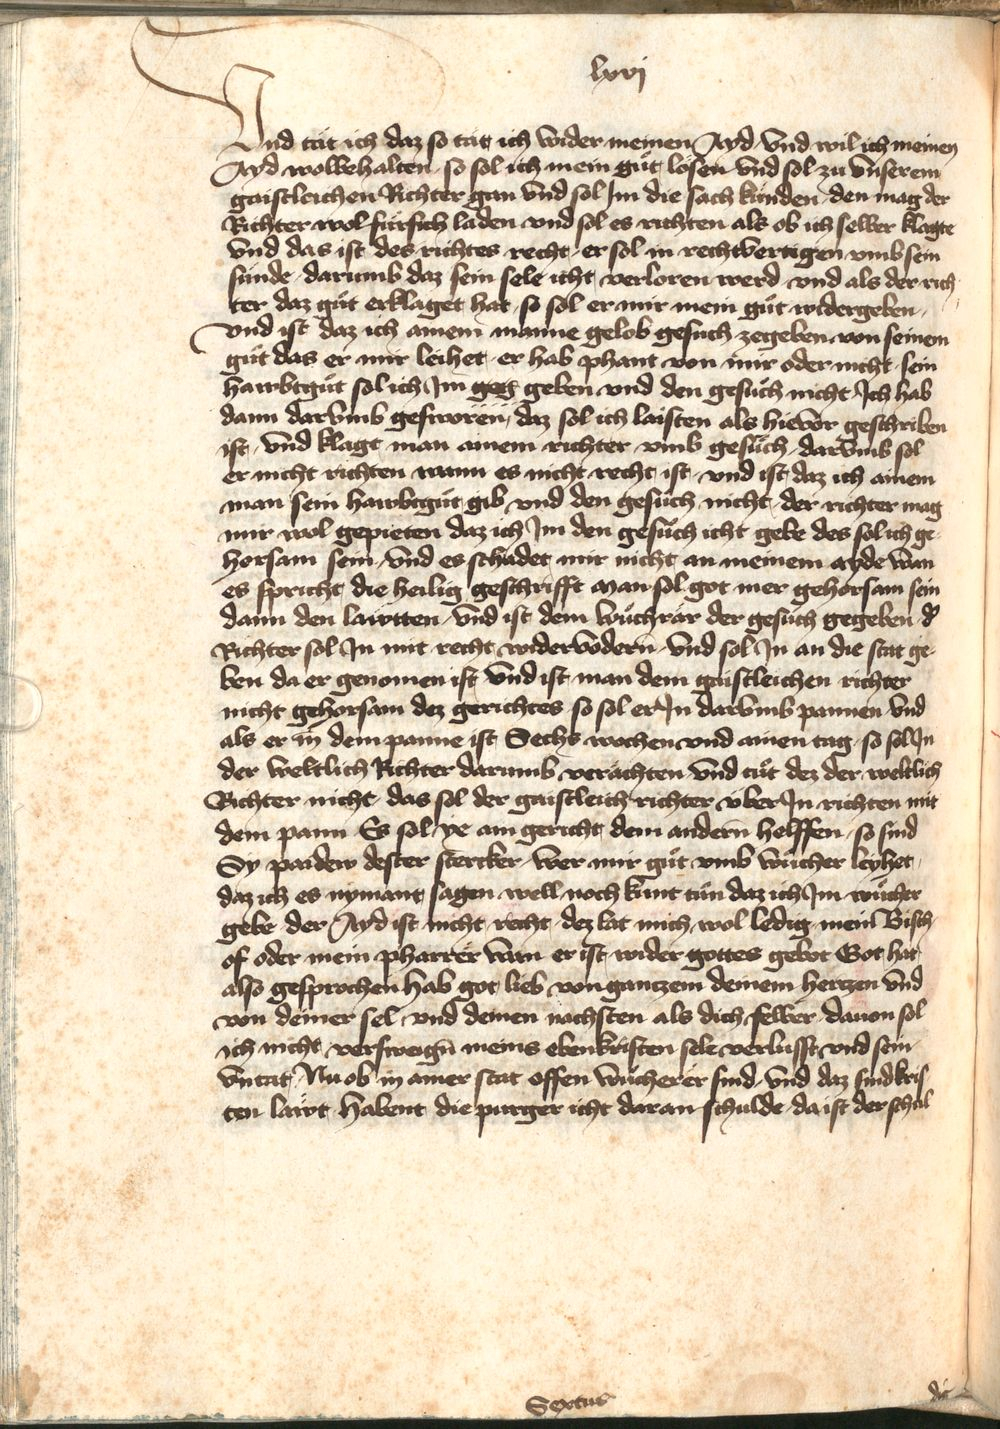 lxvi
Vnd tůt ich daz so tůt ich wider meinen Ayd vnd wil ich meinen
Ayd wol behalten so sol ich mein gůt lösen vnd sol zu vnserem
gaistleichen Richter gan vnd sol Jm die sach künden den mag der
Richter wol für sich laden vnd sol es richten als ob ich selber klagte
vnd das ist des richtes recht er sol in rechtvertigen vmb sein
sünde darumb daz sein sele icht verloren werd vnd als der rich
ter daz gůt erklaget hat so sol er mir mein gůt widergeben
vnd ist daz ich ainem manne gelob gesuch zegeben von seinem
gůt das er mir leihet er hab phant von mir oder nicht sein
hawbtgůt sol ich Jm geben vnd den gesůch nicht Jch hab
dann darvmb gesworen daz sol ich laisten als hievor geschriben
ist vnd klagt man ainem richter vmb gesůch darvmb sol
er nicht richten wann es nicht recht ist vnd ist daz ich ainem
man sein hawbtgůt gib vnd den gesůch nicht der richter mag
mir wol gepieten daz ich Jm den gesůch icht gebe des sol ich ge
horsam sein vnd es schadet mir nicht an meinem ayde wan
es spricht die heilig geschrifft Man sol got mer gehorsam sein
dann den lawtten vnd ist dem wůchrär der gesůch gegeben d'
Richter sol Jn mit recht widervodern vnd sol Jn an die stat ge
ben da er genomen ist vnd ist man dem gaistleichen richter
nicht gehorsam dez gerichtes so sol er Jn darvmb pannen vnd
als er in dem panne ist Sechs wochen vnd ainen tag so sol Jn
der weltlich Richter darumb verächten vnd tůt dez der weltlich
Richter nicht das sol der gaistleich richter über Jn richten mit
dem pann Es sol ye ain gericht dem andern helffen so sind
Sy paidew dester stercker wer mir gůt vmb wůcher leyhet
daz ich es nymant sagen well noch kunt tůn daz ich Jm wůcher
gebe der Ayd ist nicht recht dez lat mich wol ledig mein Bisch
of oder mein pharrer wan er ist wider gottes gebot Got hat
also gesprochen hab got lieb von gantzem deinem hertzen vnd
von deiner sel vnd deinen nachsten als dich selber dauon sol
ich nicht versweigñ meins ebenkristen sele verlusst vnd sein
vntat Nu ob in ainer stat offen wůcherer sind vnd daz sind kris
ten lawt habent die purger icht daran schulde da ist der schul
Sextus
die